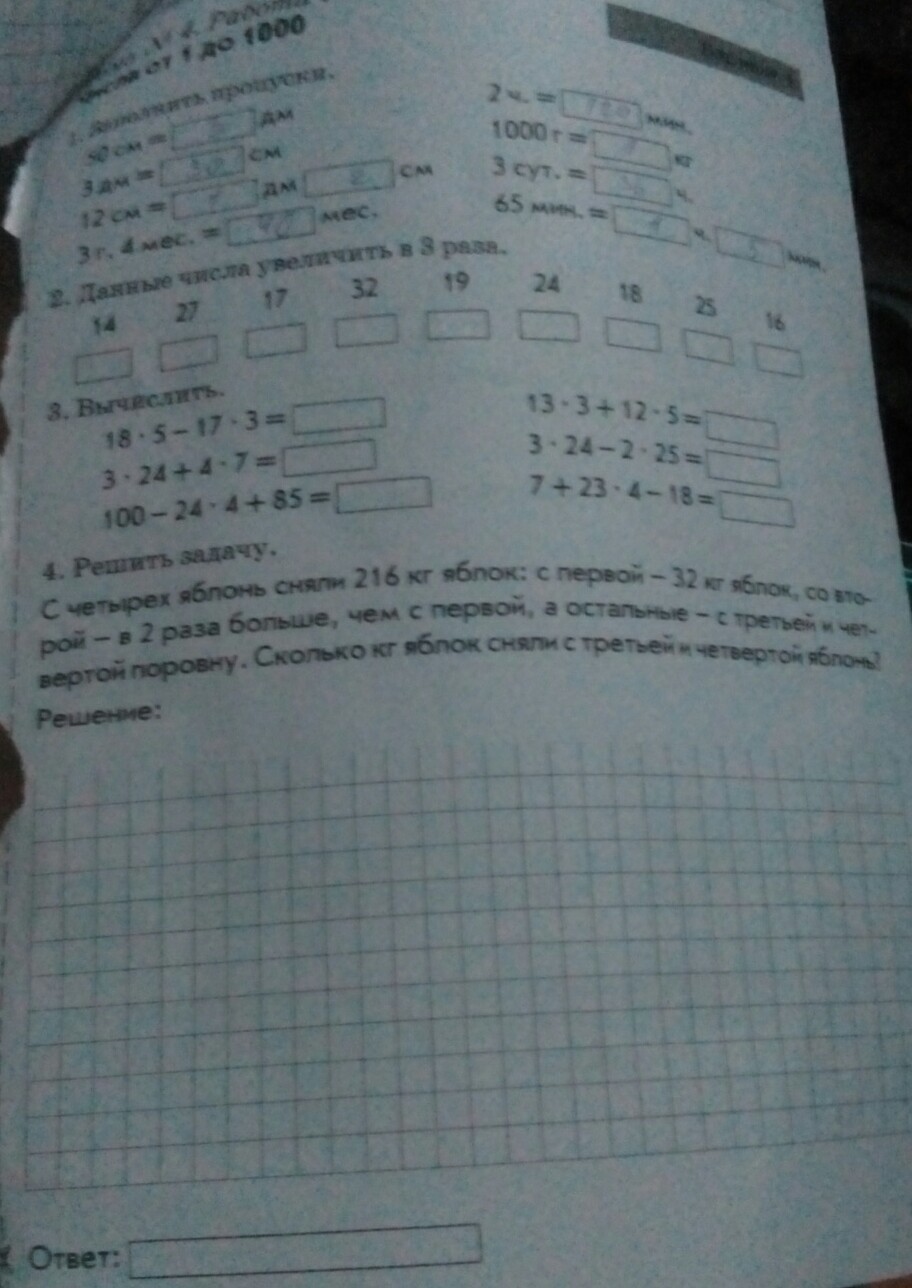 № 4. Работа
числа от 1 до 1000
1. Заполнить пропуски.
50 см = дм
3 дм = 30 см
12 см = 1 дм 2 см
3 г. 4 мес. = 40 мес.
2 ч. = 120 мин.
1000 г = 1 кг
3 сут. = ч.
65 мин. = 1 ч. 5 мин.
2. Данные числа увеличить в 3 раза.
14 27 17 32 19 24 18 25 16
3. Вычислить.
18 · 5 – 17 · 3 =
3 · 24 + 4 · 7 =
100 – 24 · 4 + 85 =
13 · 3 + 12 · 5 =
3 · 24 – 2 · 25 =
7 + 23 · 4 – 18 =
4. Решить задачу.
С четырех яблонь сняли 216 кг яблок: с первой – 32 кг яблок, со вто-
рой – в 2 раза больше, чем с первой, а остальные – с третьей и чет-
вертой поровну. Сколько кг яблок сняли с третьей и четвертой яблонь?
Решение:
Ответ: